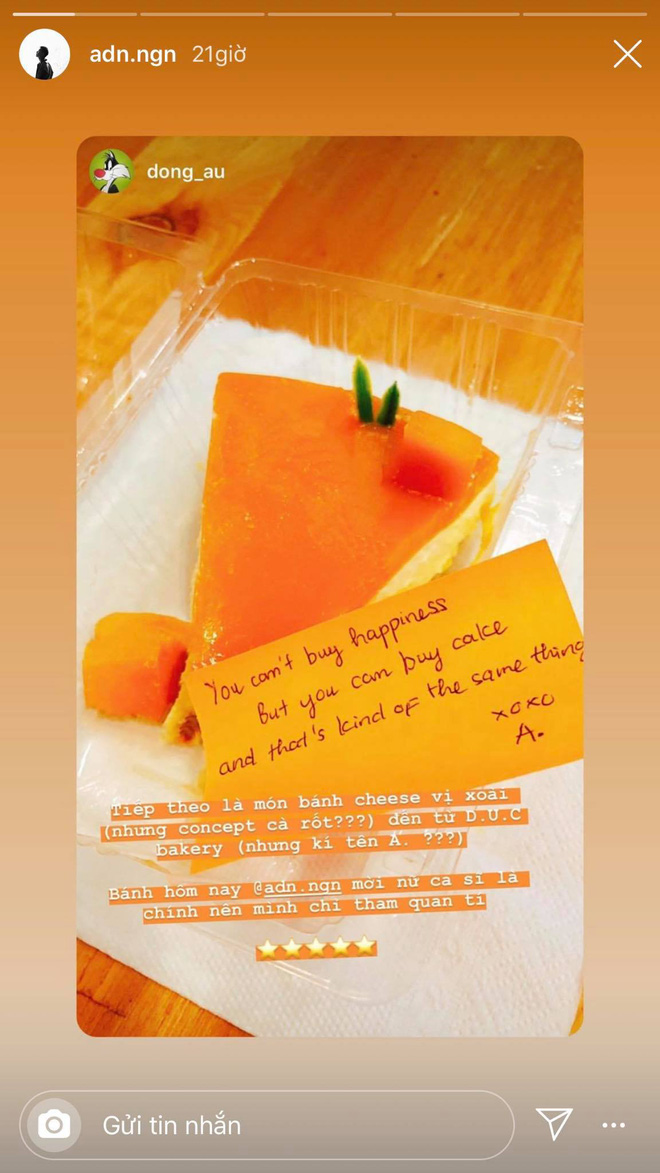 adn.ngn 21giờ
dong_au
You can't buy happiness
But you can buy cake
and that's kind of the same thing
xoxo
A.
Tiếp theo là món bánh cheese vị xoài
(nhưng concept cà rốt???) đến từ D.U.C
bakery (nhưng kí tên A. ???)
Bánh hôm nay @adn.ngn mời nữ ca sĩ là
chính nên mình chỉ tham quan tí
Gửi tin nhắn